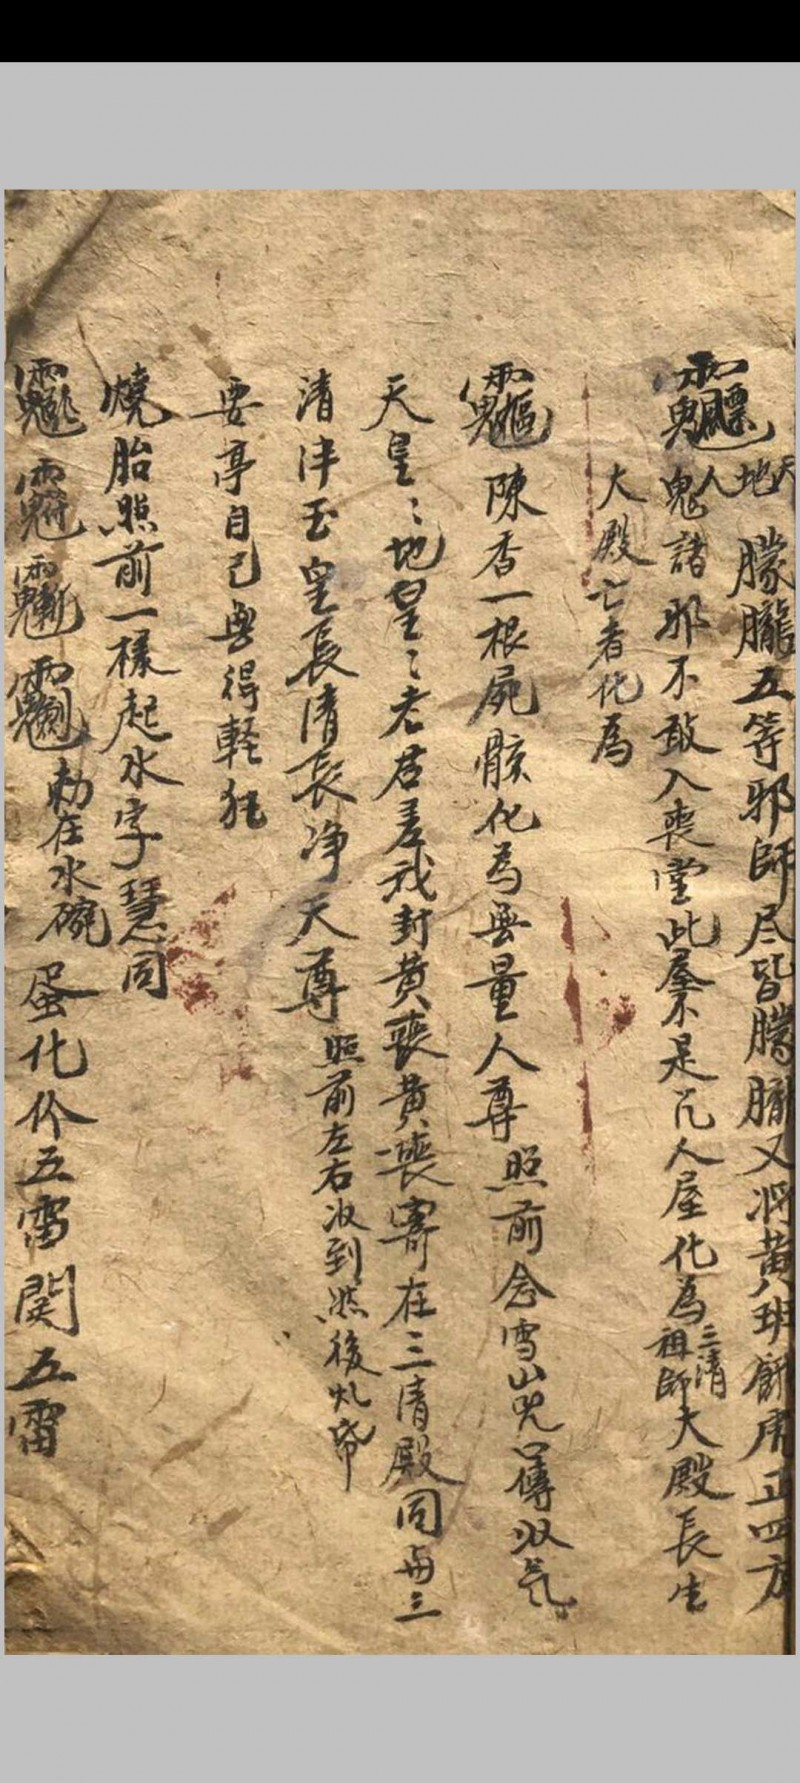 天地 朦朧五等邪師尽皆朦朧又将黄斑餓虎正四方
人鬼諸邪不敢入喪堂此屋不是凡人屋化為三清祖師大殿長生
大殿亡者化為
陳香一根屍骸化為無量人尊 照前念雪山咒口傳收气
天皇〻地皇〻老君差我封黄喪黄喪寄在三清殿同与三
清津玉皇長清長净天尊 照前左右收到然後化帋
要亭自己無得輕狂
燒胎照前一樣起水字慧同
勅在水碗 蛋化作五雷関五雷